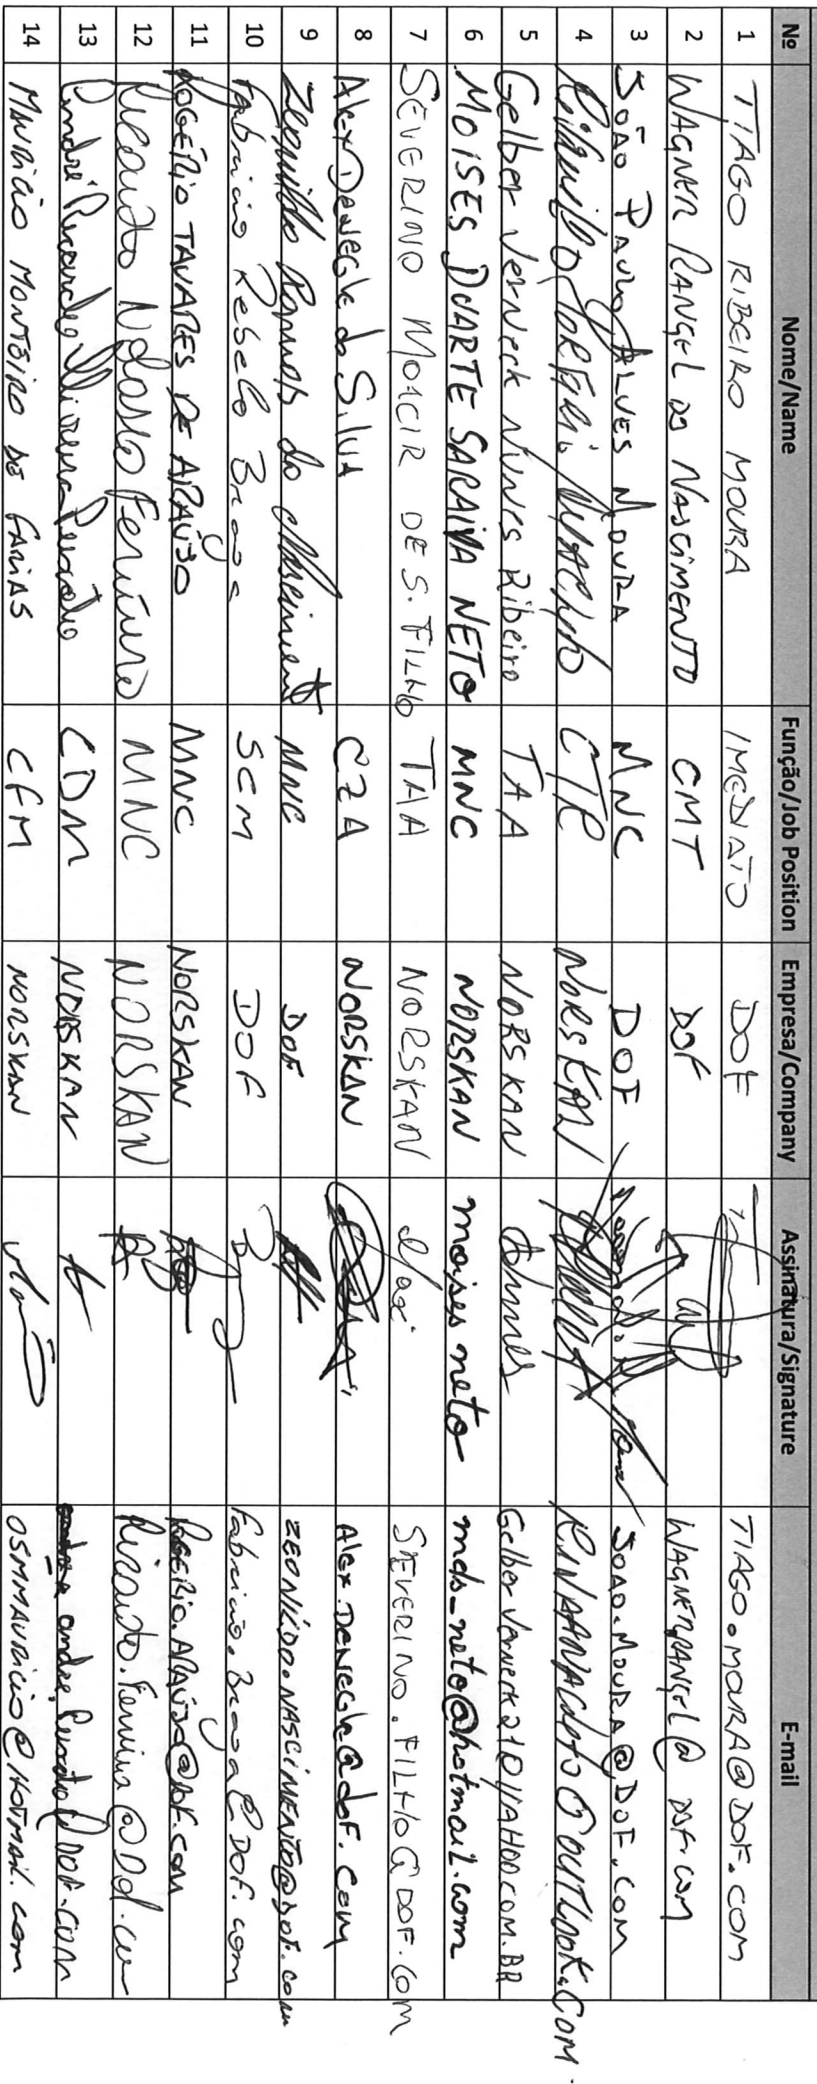 Nº Nome/Name Função/Job Position Empresa/Company Assinatura/Signature E-mail
1 TIAGO RIBEIRO MOURA IMEDIATO DOF TIAGO.MOURA@DOF.COM
2 WAGNER RANGEL DO NASCIMENTO CMT DOF WAGNERRANGEL@DOF.COM
3 JOÃO PAULO ALVES MOURA MNC DOF JOAO.MOURA@DOF.COM
4 CTR NORSKAN
5 Gelber Verneck Nunes Ribeiro TAA NORSKAN GelberVerneck21@YAHOO.COM.BR
6 MOISES DUARTE SARAIVA NETO MNC NORSKAN moises neto mds_neto@hotmail.com
7 SEVERINO MOACIR DE S. FILHO TAA NORSKAN SEVERINO.FILHO@DOF.COM
8 Alex Denegle da Silva CZA NORSKAN Alex.Denegle@dof.com
9 Zeonildo do Nascimento MNC DOF ZEONILDO.NASCIMENTO@DOF.com
10 Fabricio Rebelo Braga SCM DOF Fabricio.Braga@DOF.com
11 ROGÉRIO TAVARES DE ARAÚJO MNC NORSKAN ROGERIO.ARAUJO@DOF.COM
12 Ricardo Ferreira MNC NORSKAN Ricardo.Ferreira@dof.com
13 André CDM NORSKAN
14 MAURÍCIO MONTEIRO DE FARIAS CFM NORSKAN OSMMAURICIO@HOTMAIL.com